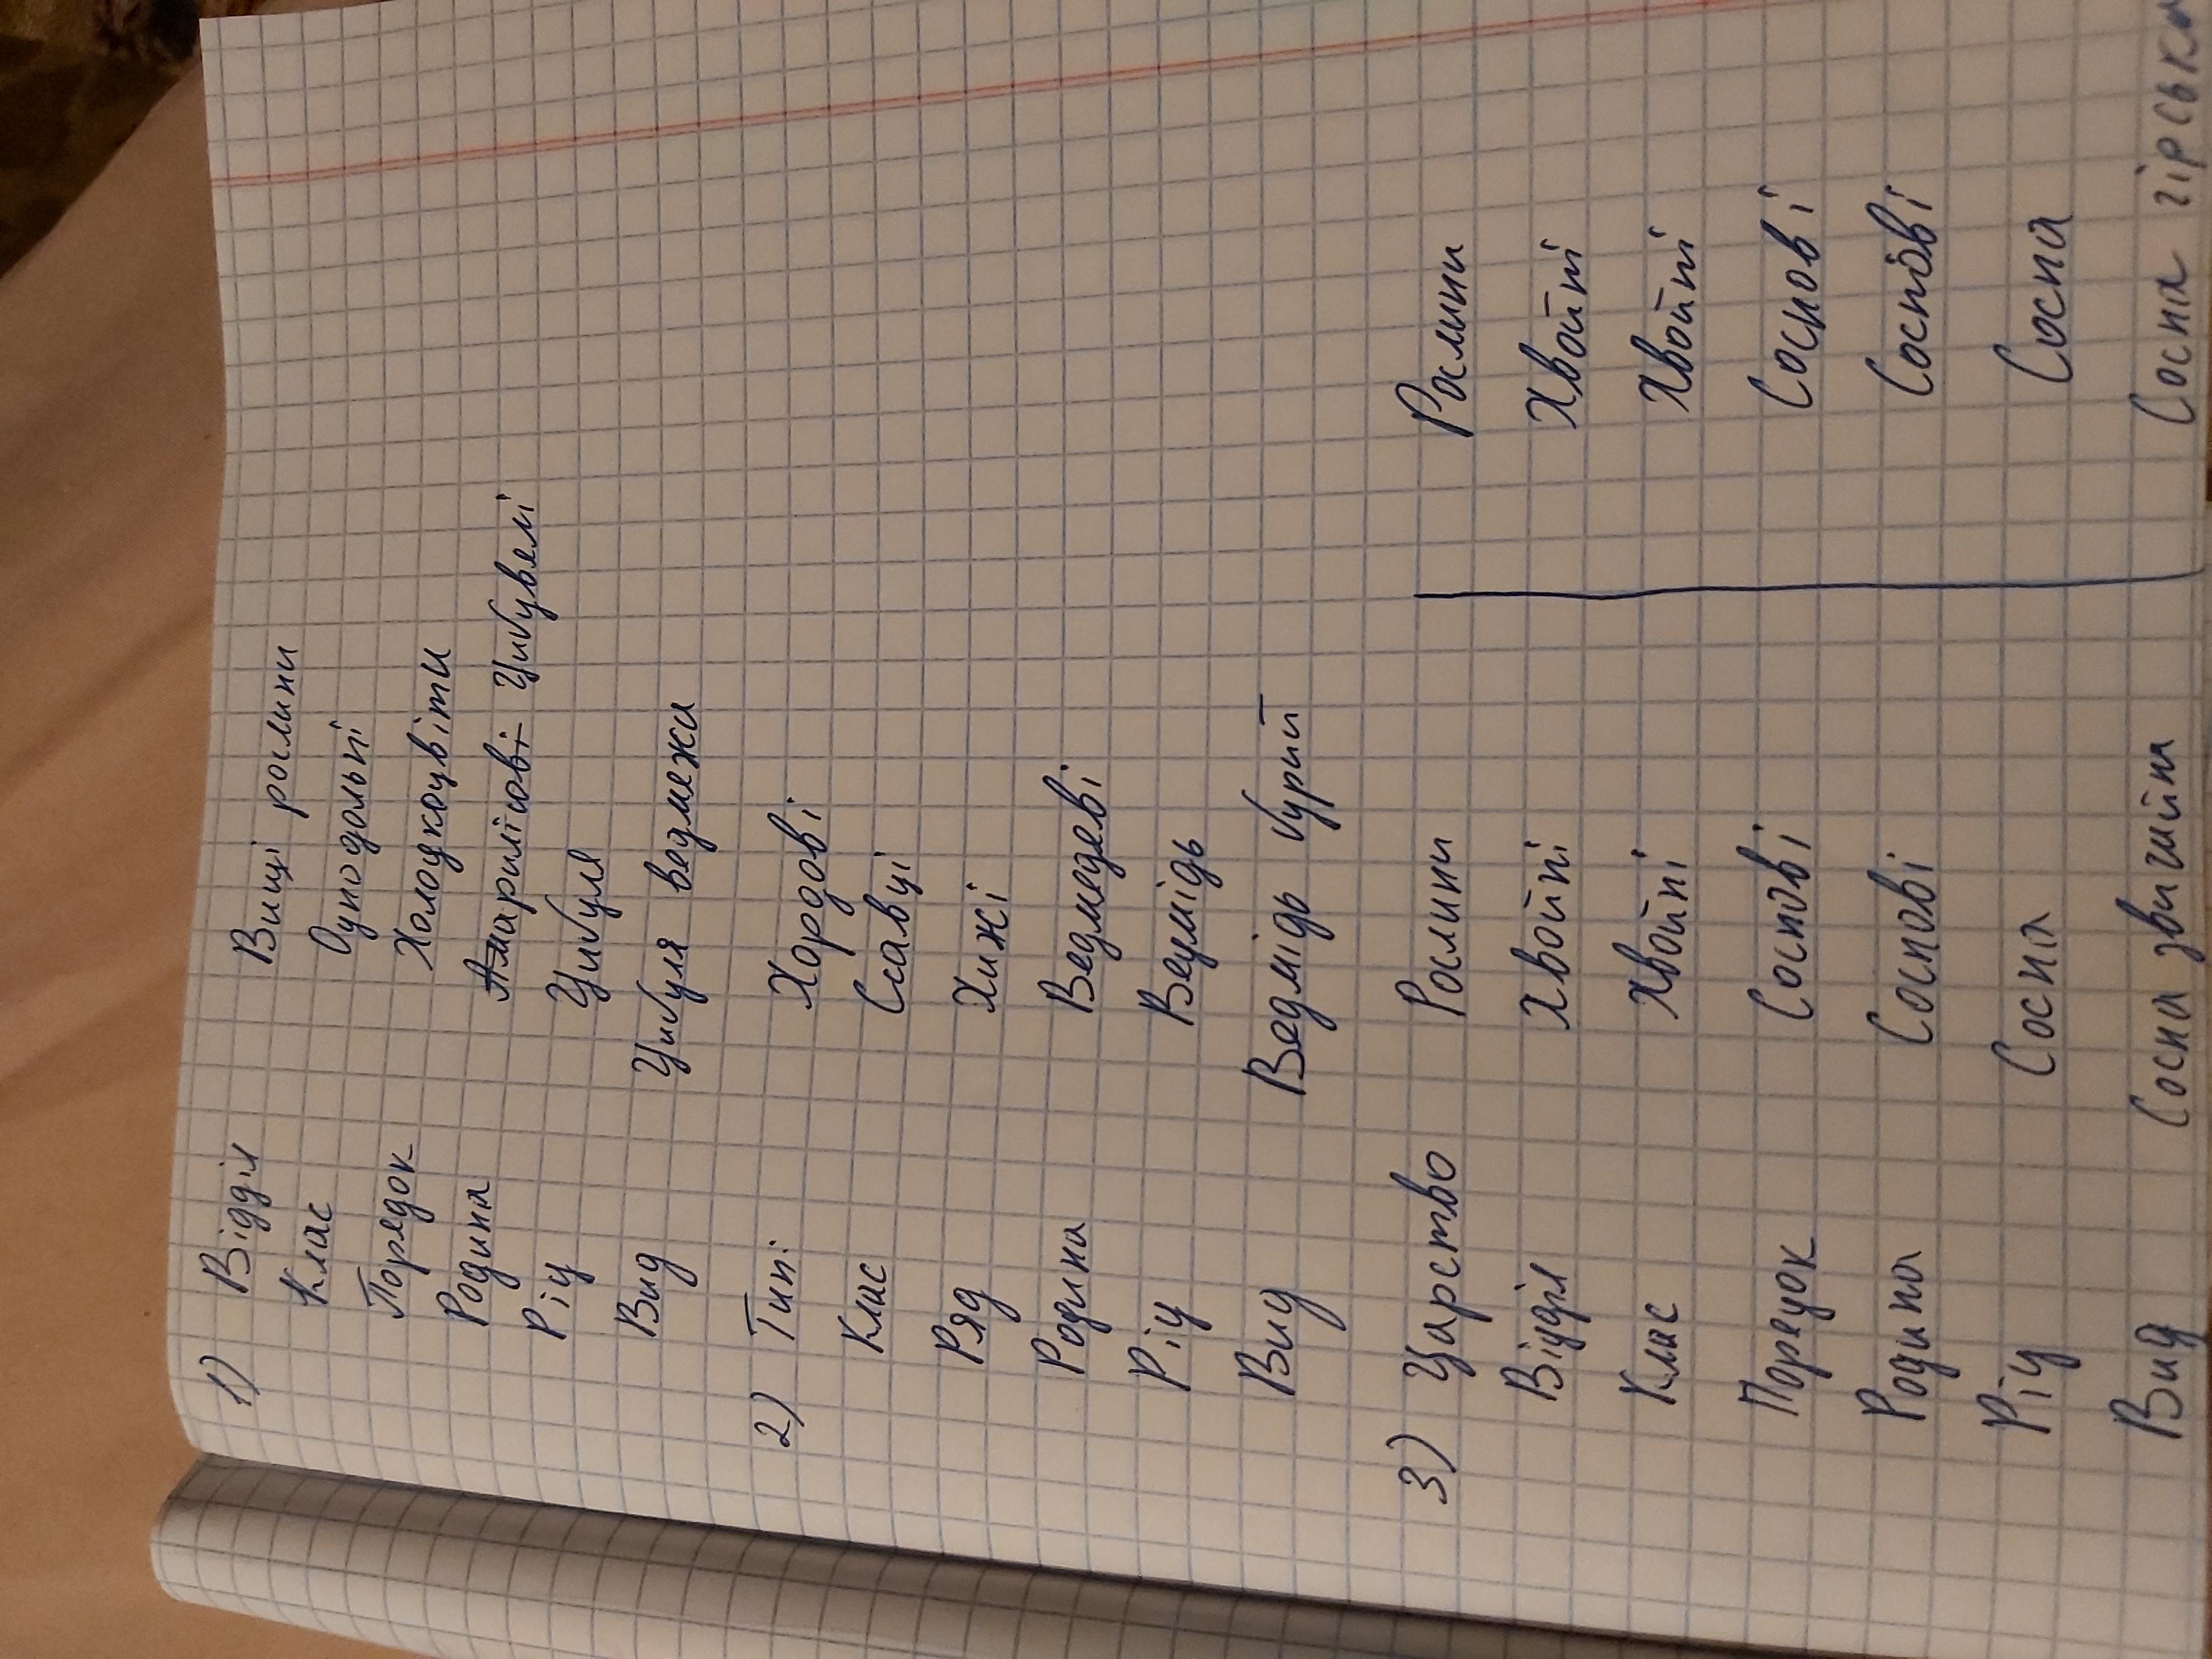 1) Відділ Вищі рослини
Клас Однодольні
Порядок Холодкоцвіти
Родина Амарилісові Цибулеві
Рід Цибуля
Вид Цибуля ведмежа
2) Тип: Хордові
Клас Ссавці
Ряд Хижі
Родина Ведмедеві
Рід Ведмідь
Вид Ведмідь бурий
3) Царство Рослини Рослини
Відділ Хвойні Хвойні
Клас Хвойні Хвойні
Порядок Соснові Соснові
Родина Соснові Соснові
Рід Сосна Сосна
Вид Сосна звичайна Сосна гірська